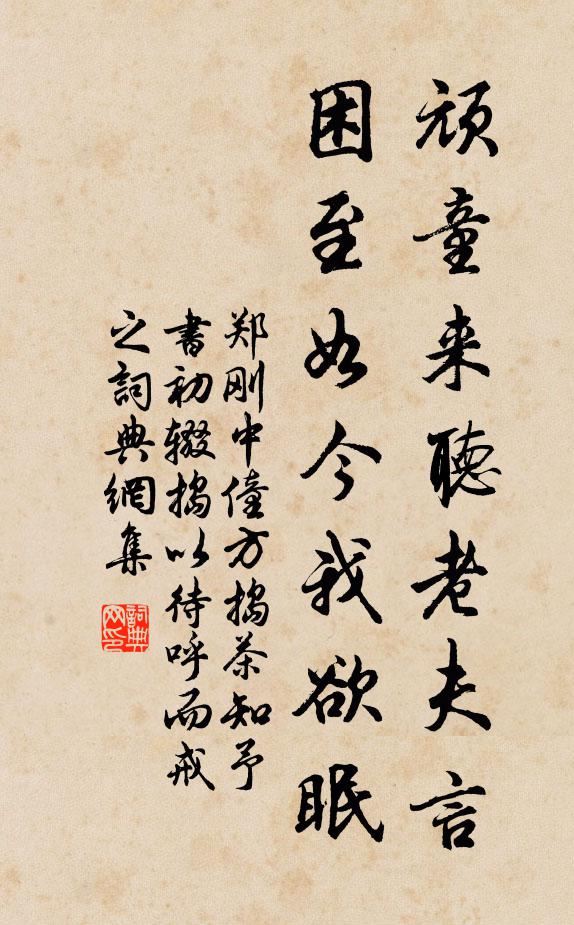 顽童来聽老夫言
困至如今我欲眠
郑刚中僮方捣茶知予
書初辍捣以待呼而戒
之詞典網集
詞典
网印